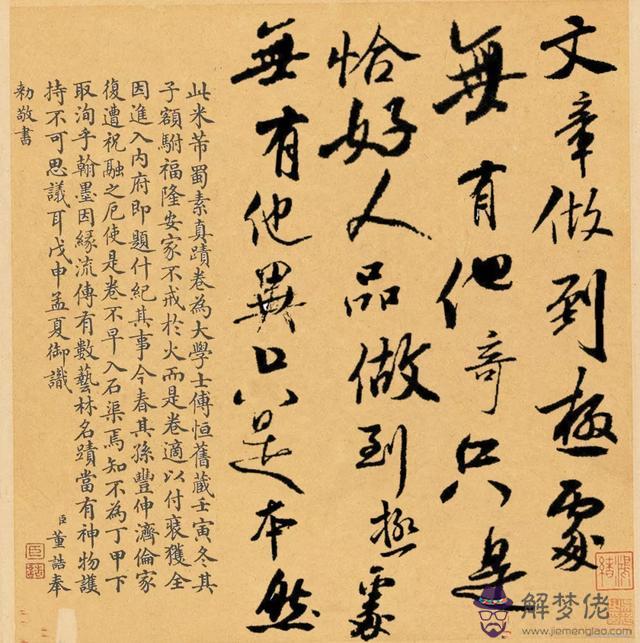 文章做到極處
無有他奇只是
恰好人品做到極處
無有他異只是本然
此米芾蜀素真蹟卷為大學士傅恒舊藏壬寅冬其
子額駙福隆安家不戒於火而是卷適以付裝獲全
因進入內府即題什紀其事今春其孫豐伸濟倫家
復遭祝融之厄使是卷不早入石渠焉知不為丁甲下
取洵乎翰墨因緣流傳有數藝林名蹟當有神物護
持不可思議耳戊申孟夏御識
臣董誥奉
勅敬書
解梦佬
www.jiemenglao.com